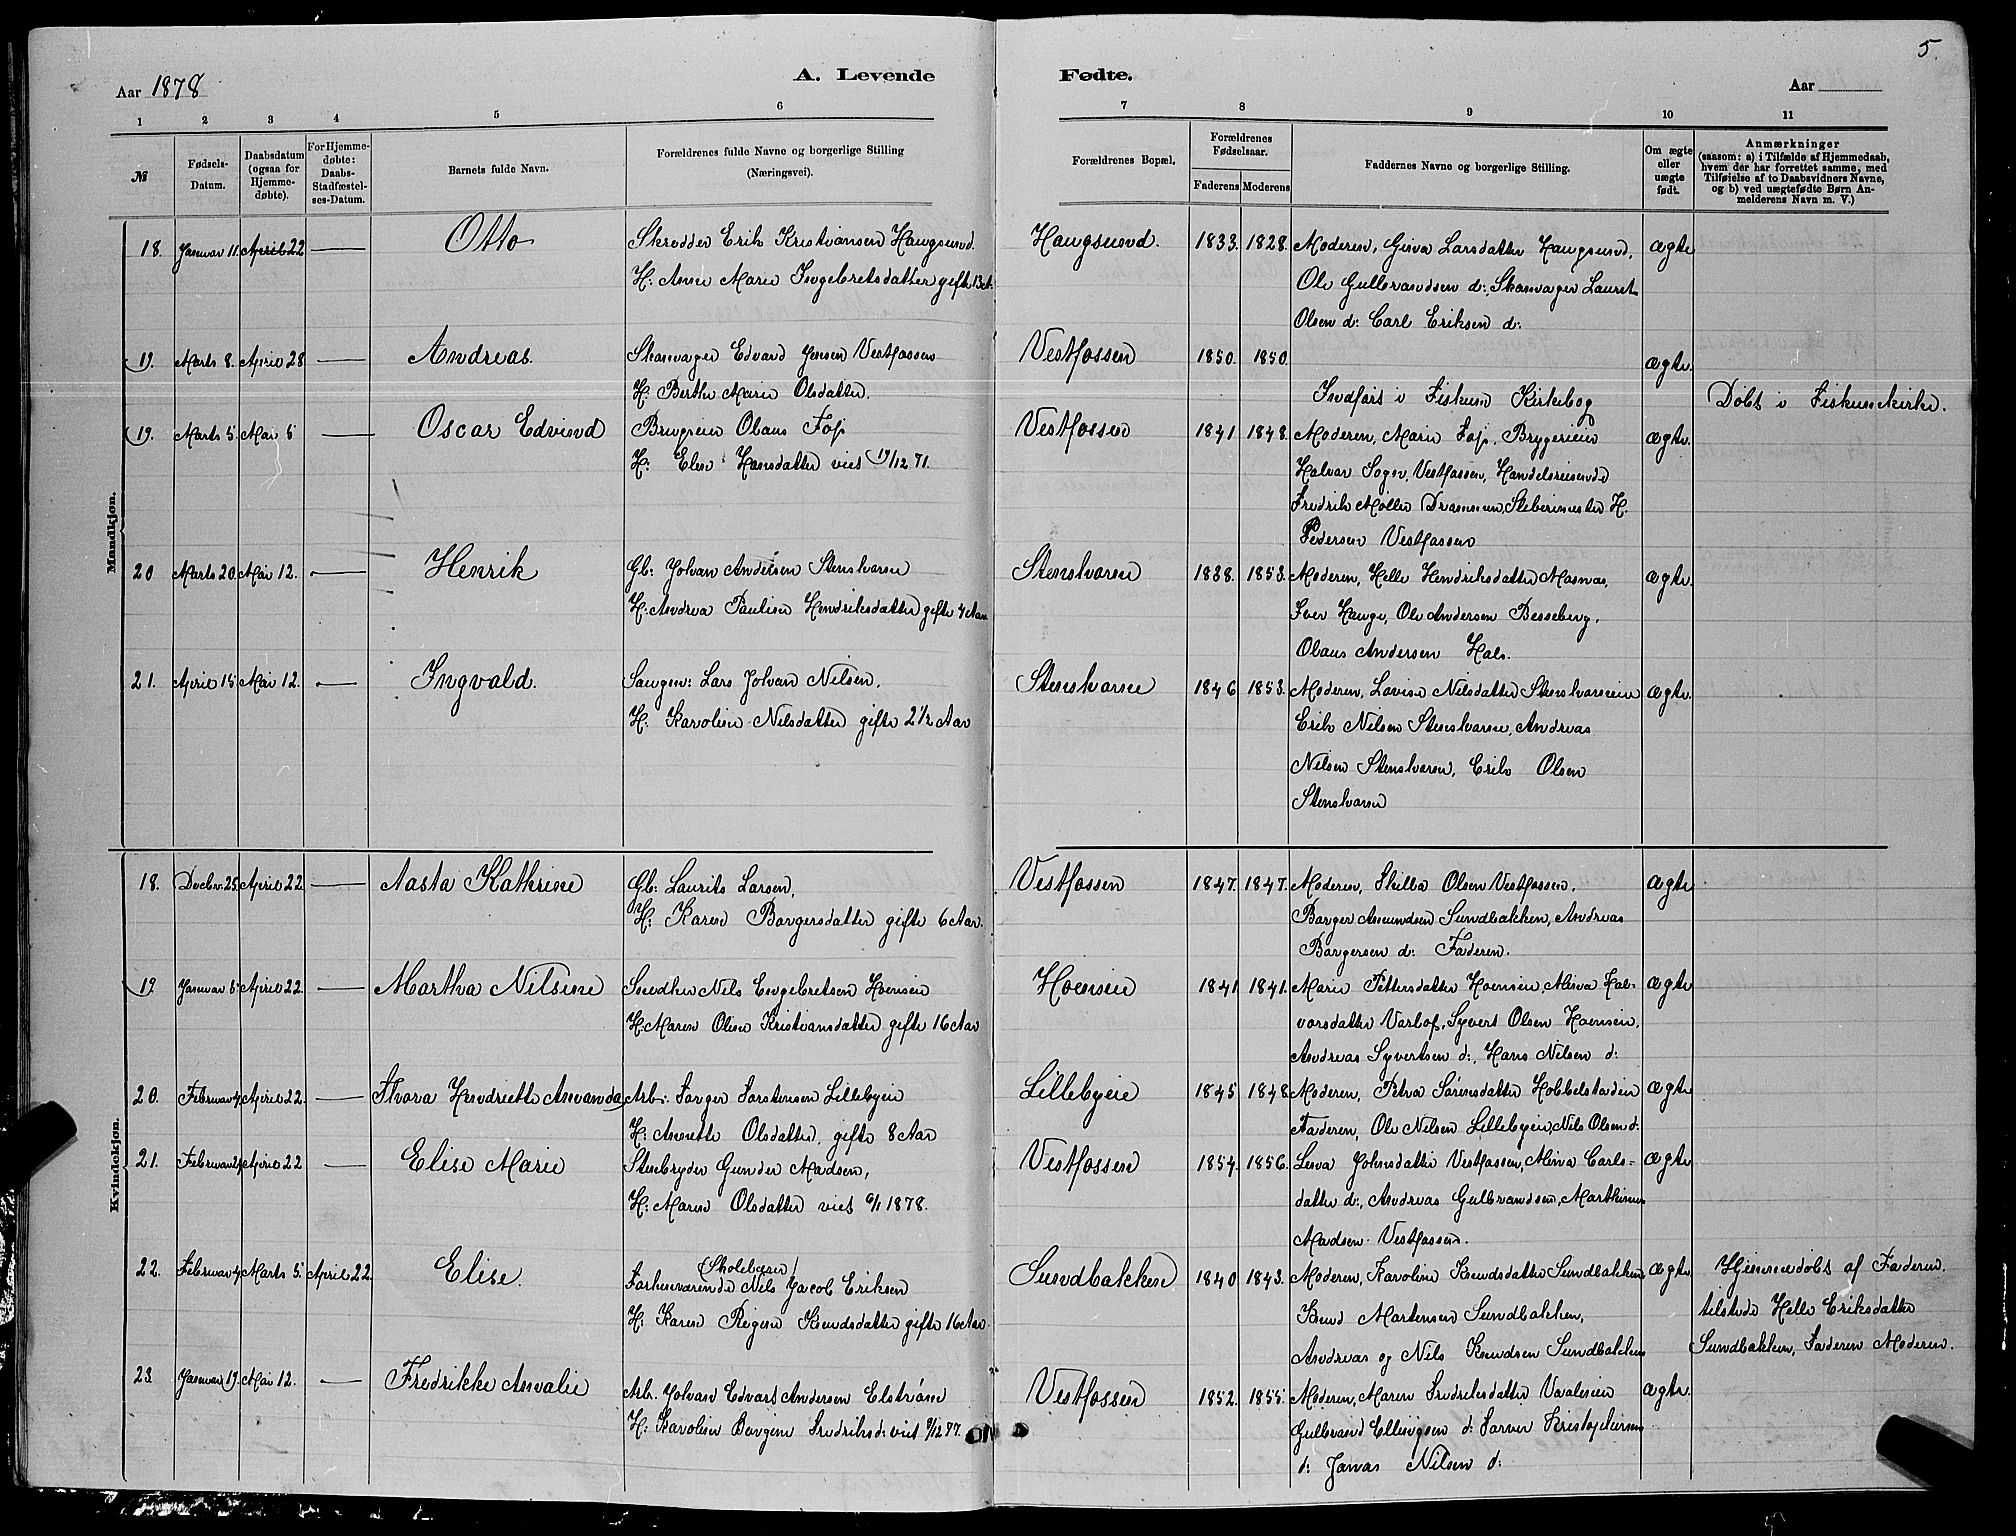 5.
A. Levende Fødte.
Aar 1878
Aar
1 2 3 4 5 6 7 8 9 10 11
№
Fødsels-Datum.
Daabsdatum (ogsaa for Hjemme-døbte).
For Hjemme-døbte: Daabs-Stadfæstel-ses-Datum.
Barnets fulde Navn.
Forældrenes fulde Navne og borgerlige Stilling (Næringsvei).
Forældrenes Bopæl.
Forældrenes Fødselsaar.
Faderens Moderens
Faddernes Navne og borgerlige Stilling.
Om ægte eller uægte født.
Anmærkninger
(saasom: a) i Tilfælde af Hjemmedaab,
hvem der har forrettet samme, med
Tilføielse af to Daabsvidners Navne,
og b) ved uægtefødte Børn An-
melderens Navn m. V.)
Mandkjøn.
18. Januar 11. April 22 — Otto Skrædder Erik Kristiansen Haugsund. Haugsund. 1833. 1828. Moderen, Larsdatter Haugsund, ægte
H: Anne Marie Ingebretsdatter gifte 13 A.
Ole Gulbrandsen d:, Laurits
Olsen d: Carl Eriksen d:
19. Marts 8. April 28 — Andreas. Edvard Jensen Vestfossen Vestfossen 1850. 1850. ægte.
H: Berthe Marie Olsdatter.
Indført i Fiskum Kirkebog
Døbt i Fiskum Kirke.
19. Marts 5. Mai 5 — Oscar Edvind Olaus Foss Vestfossen 1841 1848. Moderen, Marie Foss, ægte.
H: Elise Hansdatter viet 19/12 71.
Halvor Vestfossen, Handelsreisende
Fredrik Møller Drammen, H.
Pedersen Vestfossen
20 Marts 20. Mai 12. — Henrik Gb: Johan Andersen 1838. 1853. Moderen, Helle Hendriksdatter ægte.
H: Andrea Pauline Hendriksdatter gifte 4 Aar
Iver Hauge, Ole Andersen Besseberg,
Olaus Andersen Hals.
21. April 15 Mai 12. — Ingvald. Lars Johan Nilsen. 1846 1853. Moderen, Lovise Nilsdatter ægte.
H: Karoline Nilsdatter gifte 2 1/2 Aar
Erik Nilsen Andreas
Nilsen Erik Olsen
Kvindekjøn.
18. Decbr. 25. April 22 — Aasta Kathrine Gb: Laurits Larsen, Vestfossen 1847. 1847. Moderen, Olsen Vestfossen. ægte
H: Karen Borgersdatter gifte 6 Aar.
Borger Amundsen Sundbakken, Andreas
Borgersen d: Faderen.
19. Januar 5. April 22. — Martha Nilsine Nils Engebretsen Hoensen Hoensen 1841 1841. Marie Pettersdatter Hoensen, Hal- ægte
H: Maren Olsen Kristiansdatter gifte 16 Aar
vorsdatter Syvert Olsen Hoensen,
Andreas Syvertsen d:, Hans Nilsen d:
20. Februar 4. April 22. — Thora Hendriette Amanda Arb: Lillebyeie Lillebyeie 1845 1848 Moderen, Petra Sørensdatter ægte
H: Annette Olsdatter, gifte 8 Aar
Faderen, Ole Nilsen Lillebyeie, Nils Olsen d:
21. Februar April 22 — Elise Marie Stenbryder Gunder Madsen, Vestfossen 1854. 1856. Johnsdatter Vestfossen, Carls- ægte
H: Maren Olsdatter viet 6/1 1878.
datter d:, Andreas Gulbrandsen, Marthinus
Madsen Vestfossen.
22. Februar 4. Marts 5. April 22. Elise. Nils Jacob Eriksen Sundbakken 1840 1843. Moderen, Karoline Knudsdatter Sundbakken ægte Hjemmedøbt af Faderen.
H: Karen Knudsdatter gifte 16 Aar.
Knud Martensen Sundbakken,
Andreas og Nils Knudsen Sundbakken
tilstede Helle Eriksdatter
Sundbakken, Faderen Moderen.
23. Januar 19. Mai 12. — Fredrikke Amalie Arb. Johan Edvart Andersen Vestfossen 1852. 1855. Moderen, Maren Fredriksdatter ægte.
H: Karoline Fredriksd: viet 9/12 77.
Gulbrand Ellingsen d:
d: Nilsen d: